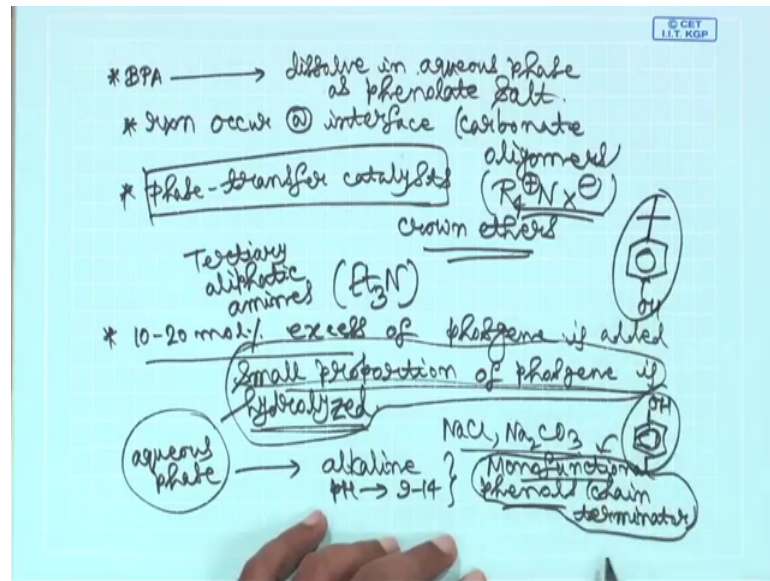 © CET
I.I.T. KGP
* BPA → dissolve in aqueous phase
as phenolate salt.
* rxn occur @ interface (carbonate
oligomers)
* Phase-transfer catalysts (R4⊕N X⊖)
crown ethers
Tertiary
aliphatic
amines (Et3N)
OH
* 10-20 mol% excess of phosgene is added
Small proportion of phosgene is
hydrolyzed
OH
NaCl, Na2CO3
aqueous
phase → alkaline } Monofunctional
pH → 9-14 } phenols (chain
terminator)